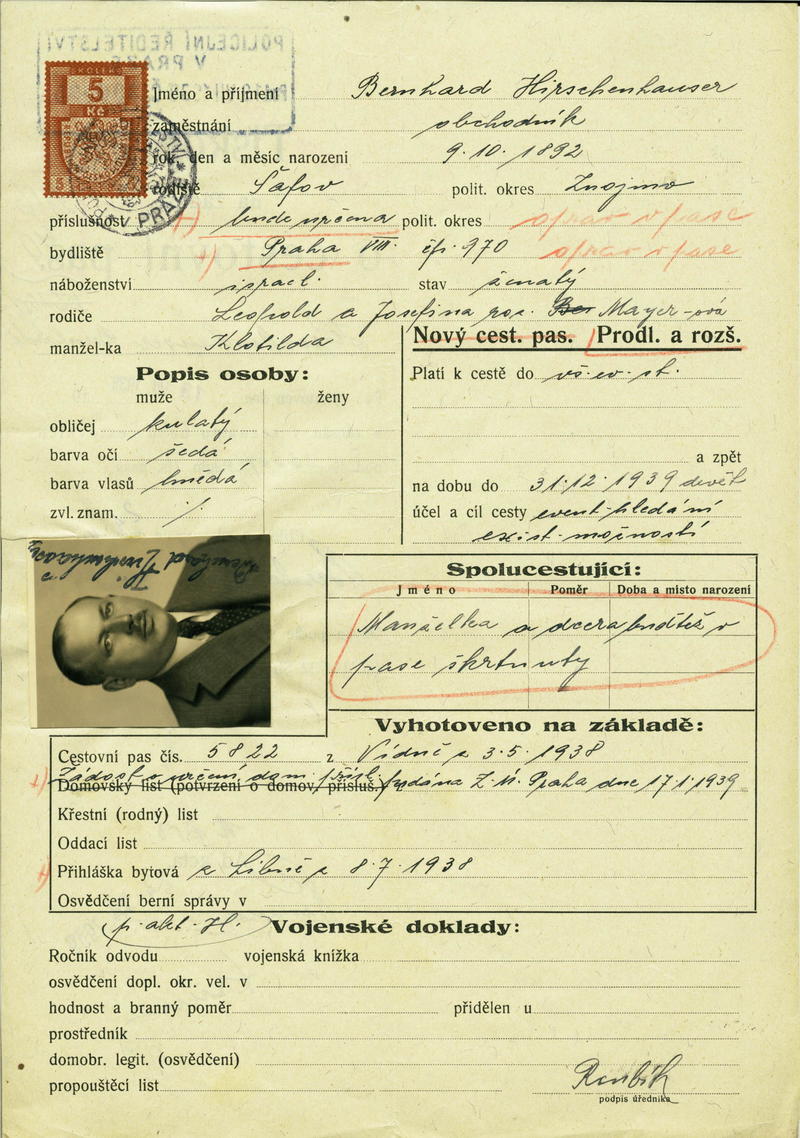 POLICEJNÍ ŘEDITELSTVÍ
V PRAZE
KOLEK
5
Kč
V PRAZE
Jméno a příjmení Bernhard Hirschenhauser
zaměstnání obchodník
rok, den a měsíc narození 9.10.1892
rodiště Šafov polit. okres Znojmo
příslušnost bude určena polit. okres oprav v pase
bydliště Praha VIII. čp. 970 oprav v pase
náboženství israel. stav ženatý
rodiče Leopold a Josefina roz. Mayer-ová
manžel-ka Klotilda
Nový cest. pas. Prodl. a rozš.
Popis osoby:
muže ženy
obličej kulatý
barva očí šedá
barva vlasů hnědá
zvl. znam. /.
Platí k cestě do vš. ev. st.
a zpět
na dobu do 31.12.1939 devět
účel a cíl cesty event. hledání
exist. možností
Bernhard Hirschenhauser
Spolucestující:
Jméno Poměr Doba a místo narození
Manželka a dcera buďtež v
pase škrtnuty
Vyhotoveno na základě:
Cestovní pas čís. 5822 z Vídně z 3.5.1938
Žádost o určení dom. přísl. podána Z. Ú. Praha dne 17.1.1939
Domovský list (potvrzení o domov. přísluš.)
Křestní (rodný) list
Oddací list
Přihláška bytová z Libně z 8.7.1938
Osvědčení berní správy v
Vojenské doklady:
Ročník odvodu vojenská knížka
osvědčení dopl. okr. vel. v
hodnost a branný poměr přidělen u
prostředník
domobr. legit. (osvědčení)
propouštěcí list
podpis úředníka